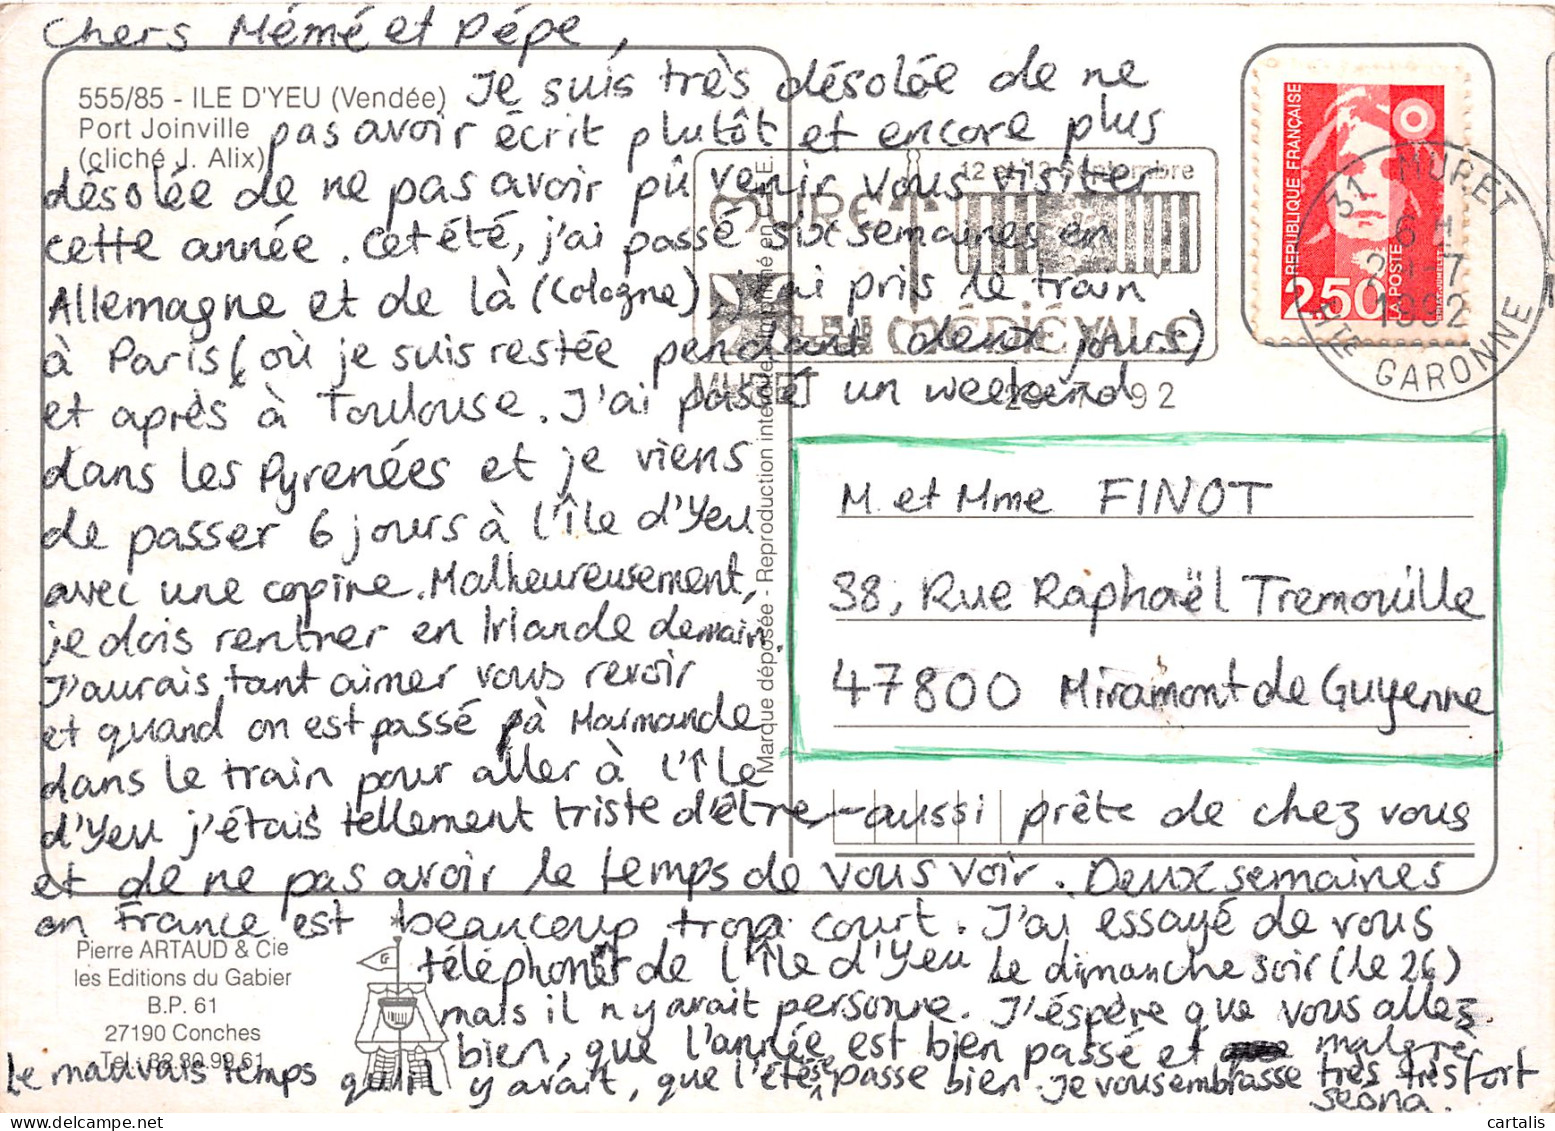 Chers Mémé et Pépé,
555/85 - ILE D'YEU (Vendée)
Port Joinville
(cliché J. Alix)
Je suis très désolée de ne
pas avoir écrit plutôt et encore plus
désolée de ne pas avoir pû venir vous visiter
cette année. Cet été, j'ai passé six semaines en
Allemagne et de là (Cologne), j'ai pris le train
à Paris (où je suis restée pendant deux jours)
et après à Toulouse. J'ai passé un weekend
dans les Pyrenées et je viens
de passer 6 jours à l'Île d'Yeu
avec une copine. Malheureusement,
je dois rentrer en Irlande demain.
J'aurais tant aimer vous revoir
et quand on est passé à Marmande
dans le train pour aller à l'Île
d'Yeu j'étais tellement triste d'être aussi prête de chez vous
et de ne pas avoir le temps de vous voir. Deux semaines
en France est beaucoup trop court. J'ai essayé de vous
téléphoner de l'Île d'Yeu le dimanche soir (le 26)
mais il n'y avait personne. J'éspère que vous allez
bien, que l'année est bien passé et malgré
le mauvais temps qu'il y avait, que l'été se passe bien. Je vous embrasse très très fort
Seóna.
Pierre ARTAUD & Cie
les Editions du Gabier
B.P. 61
27190 Conches
Tel : 32 30 99 61
G
Marque déposée - Reproduction interdite - Imprimé en C.E.E.
12 et 13 Septembre
MURET
MÉDIÉVALE
MURET
92
RÉPUBLIQUE FRANÇAISE
2,50
LA POSTE
31 MURET
6 H
-7
1992
HTE GARONNE
M. et Mme FINOT
38, Rue Raphaël Tremouille
47800 Miramont de Guyenne
cartalis